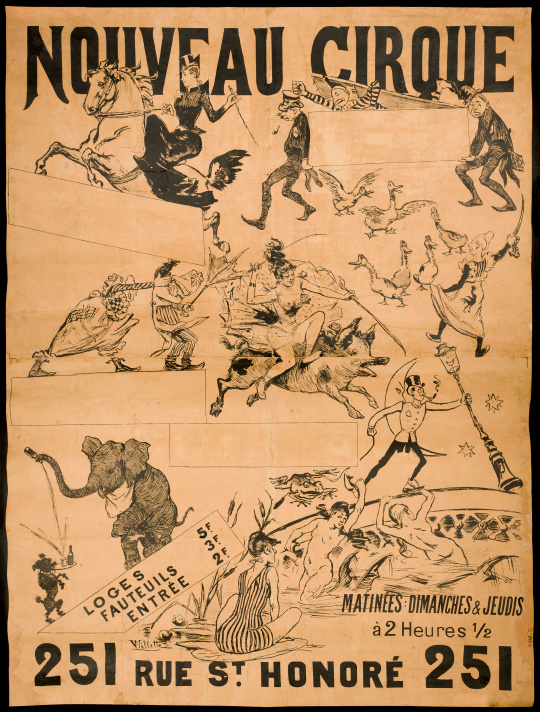 NOUVEAU CIRQUE
LOGES 5F
FAUTEUILS 3F
ENTRÉE 2F
Willette
MATINÉES·DIMANCHES & JEUDIS
à 2 Heures ½
251 RUE ST HONORÉ 251